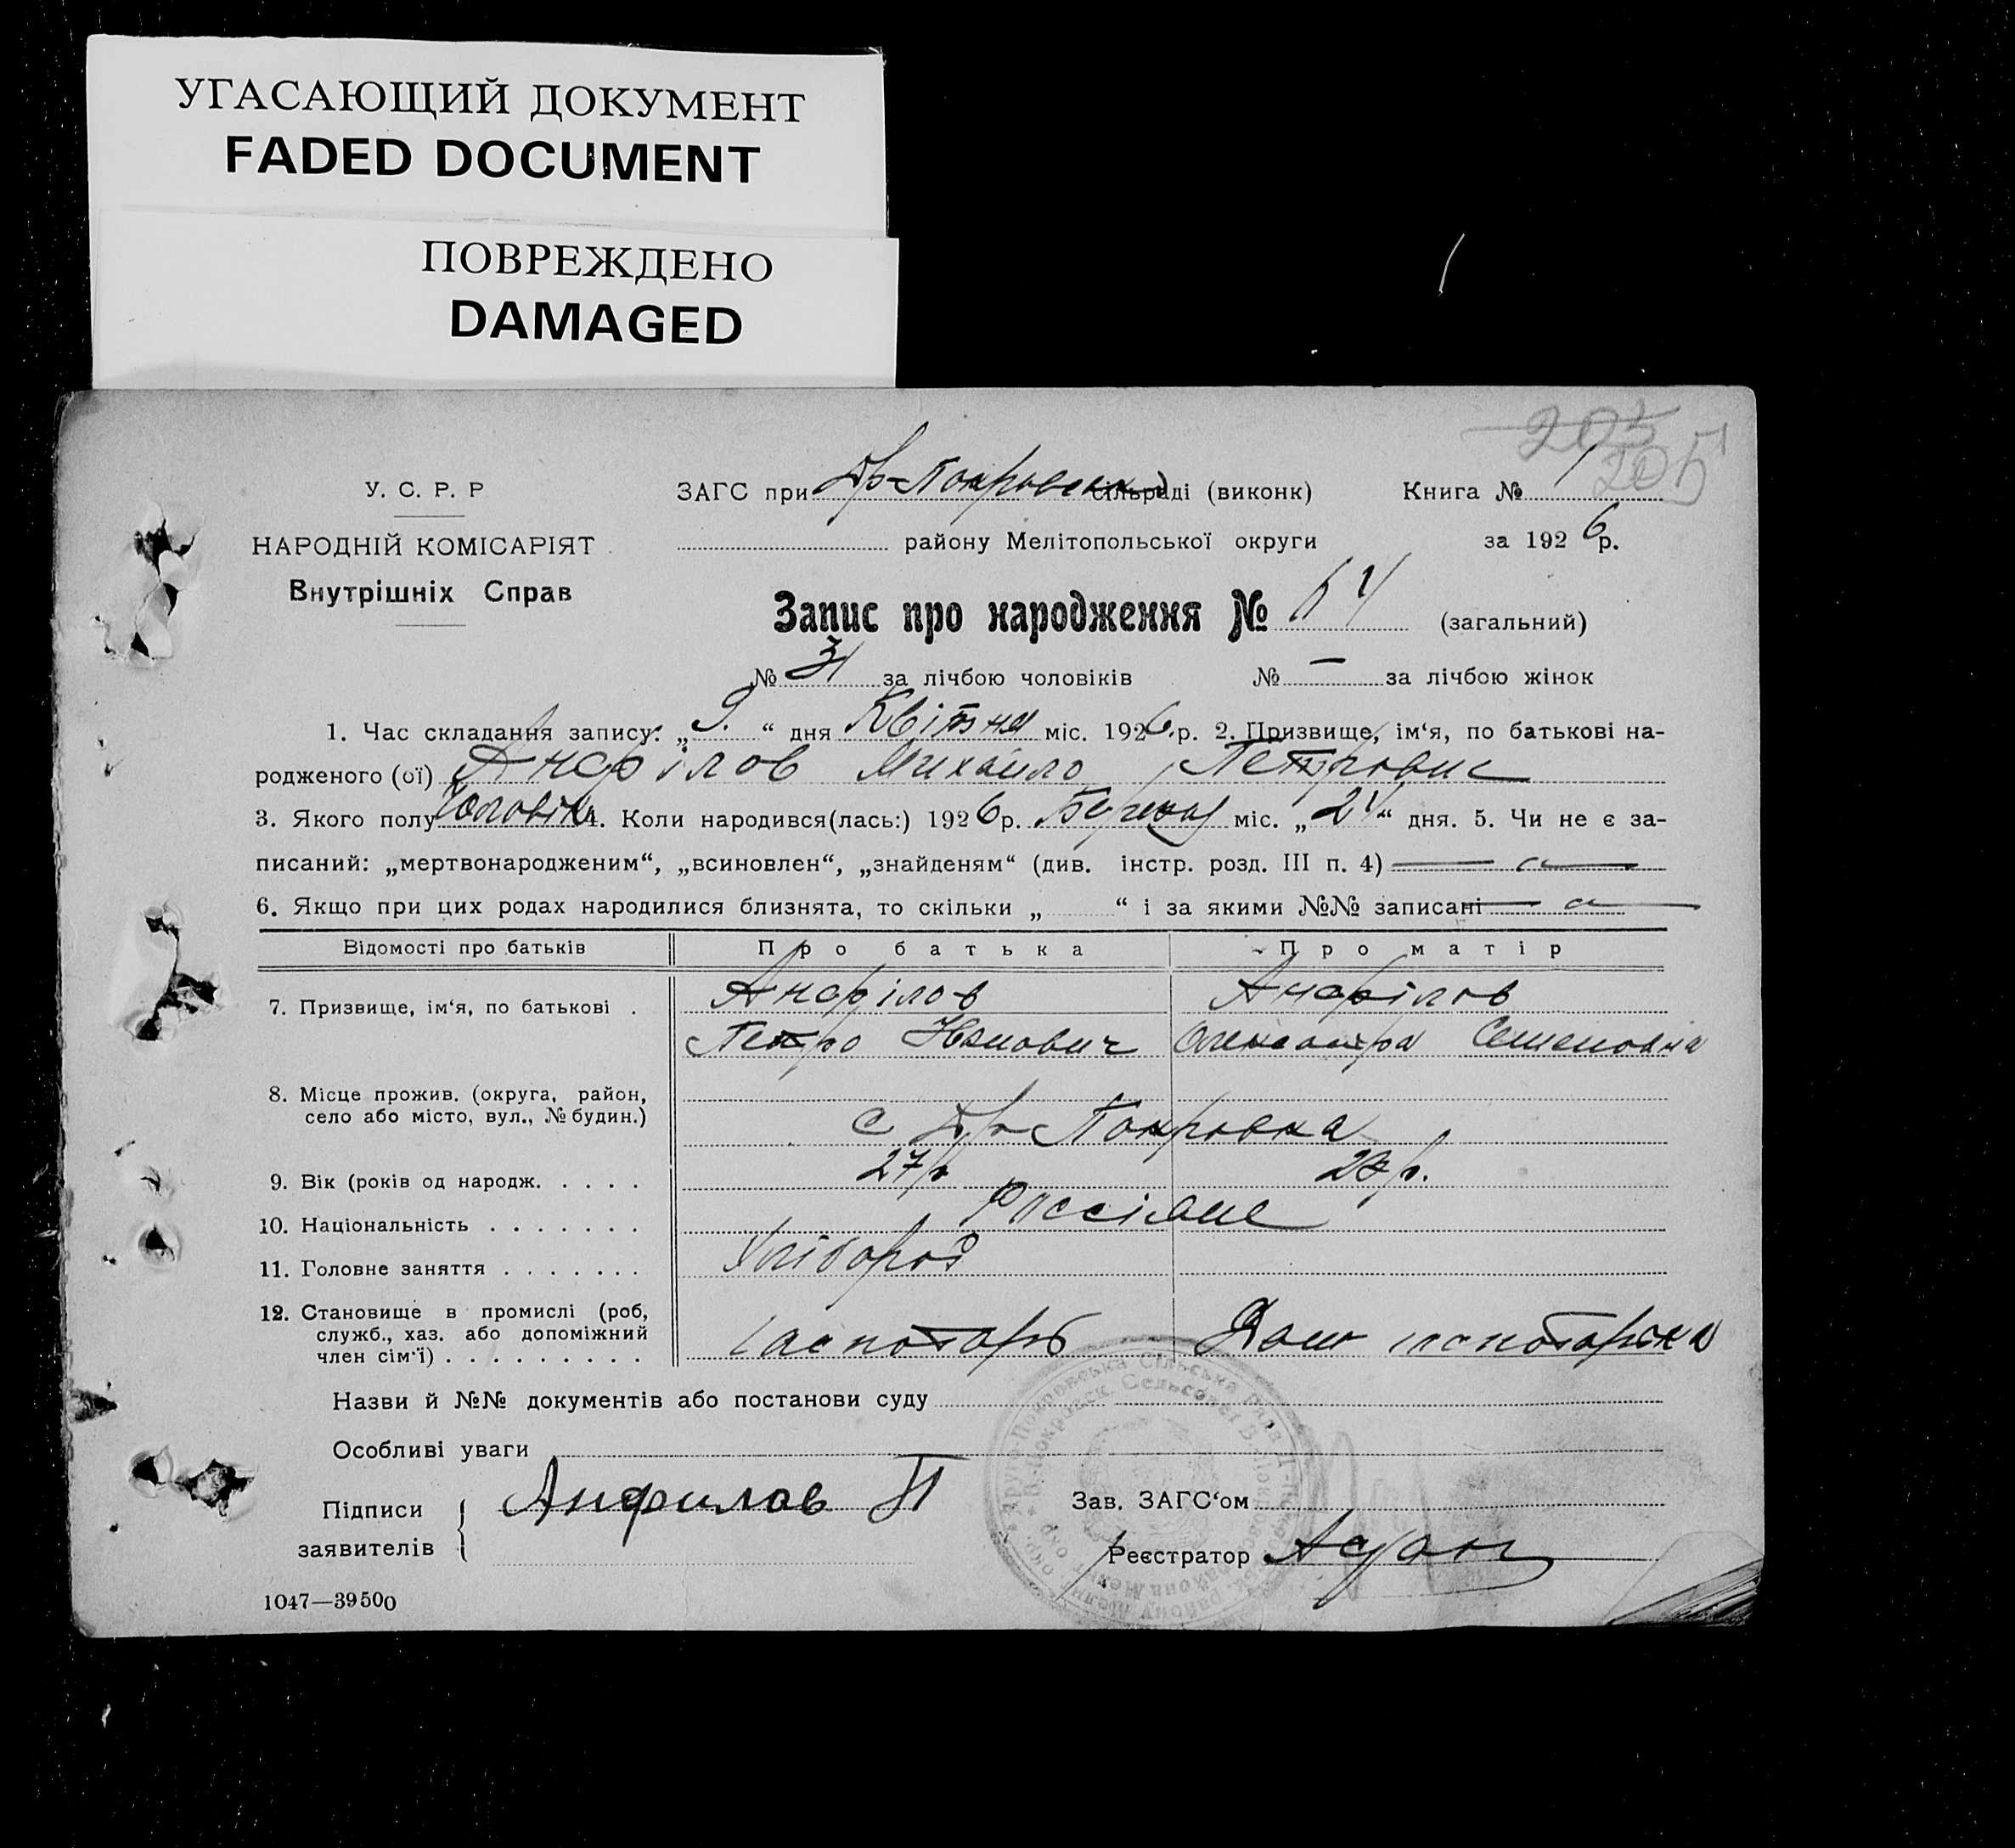 УГАСАЮЩИЙ ДОКУМЕНТ
FADED DOCUMENT
ПОВРЕЖДЕНО
DAMAGED
205
205
У. С. Р. Р
НАРОДНІЙ КОМІСАРІЯТ
Внутрішніх Справ
ЗАГС при Др-Покровськ сільраді (виконк) Книга № 1
району Мелітопольської округи за 1926 р.
Запис про народження № (загальний)
№ 31 за лічбою чоловіків № — за лічбою жінок
1. Час складання запису: „ 9. “ дня Квітня міс. 1926 р. 2. Призвище, ім‘я, по батькові на-
родженого (ої) Анфілов Михайло Петрович
3. Якого полу Чоловік 4. Коли народився(лась:) 1926 р. Березня міс. „ 24 “ дня. 5. Чи не є за-
писаний: „мертвонародженим“, „всиновлен“, „знайденям“ (див. інстр. розд. III п. 4)
6. Якщо при цих родах народилися близнята, то скільки „ “ і за якими №№ записані
Відомості про батьків Про батька Про матір
7. Призвище, ім‘я, по батькові . Анфілов Анфілов
Петро Іванович Олександра Семеновна
8. Місце прожив. (округа, район,
село або місто, вул., № будин.) с Др-Покровка
9. Вік (років од народж. . . . . 27 р р.
10. Національність . . . . . . . Россіяне
11. Головне заняття . . . . . . . Хлібороб
12. Становище в промислі (роб,
служб., хаз. або допоміжний
член сім‘ї) . . . . . . . . . Господарь Дом господарска
Назви й №№ документів або постанови суду
Особливі уваги
Підписи
заявителів
Анфилов П
Зав. ЗАГС‘ом
Реєстратор
1047—39500